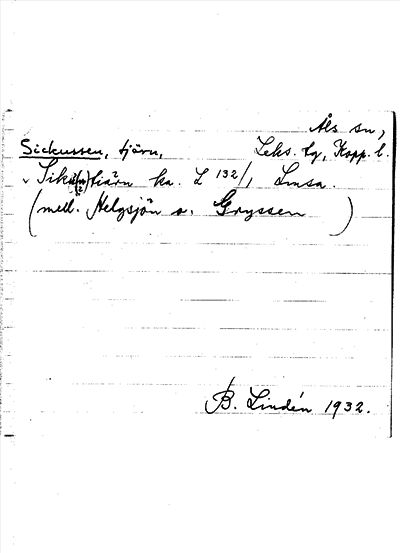 Åls sn,
Sickussen, tjärn, Leks. tg, Kopp. l.
v Siku tjärn ka. L 132/1 Lmsa.
(mell. Helgsjön o. Gryssen)
B. Lindén 1932.